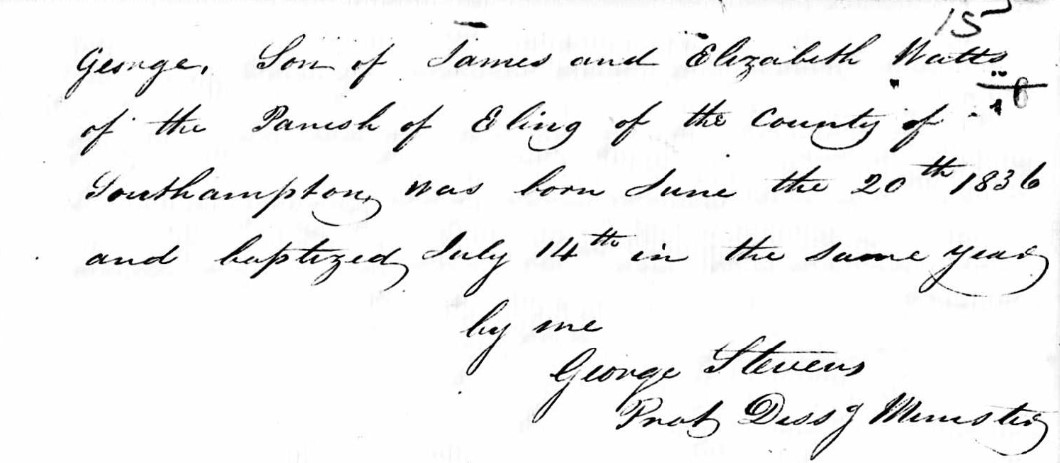 15
George, Son of James and Elizabeth Watts
of the Parish of Eling of the County of
Southampton, was born June the 20th 1836
and baptized July 14th in the same year
by me
George Stevens
Prot Dissg Minister